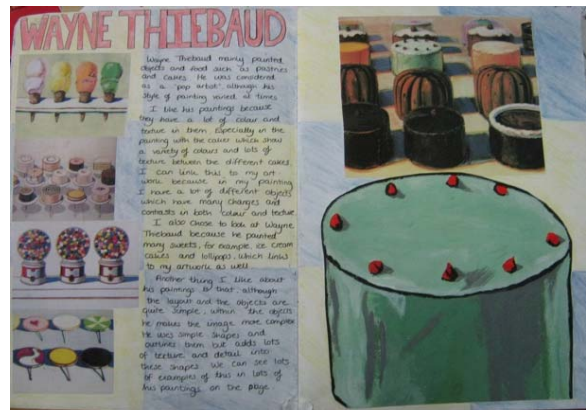 WAYNE THIEBAUD
Wayne Thiebaud mainly painted
objects and food such as pastries
and cakes. He was considered
as a 'pop artist' although his
style of painting varied at times.
I like his paintings because
they have a lot of colour and
texture in them especially in the
painting with the cakes which show
a variety of colours and lots of
texture between the different cakes.
I can link this to my art
work because in my painting
I have a lot of different objects
which have many changes and
contrasts in both colour and texture.
I also chose to look at Wayne
Thiebaud because he painted
many sweets, for example, ice cream
cakes and lollipops, which links
to my artwork as well.
Another thing I like about
his paintings is that, although
the layout and the objects are
quite simple, within the objects
he makes the image more complex
He uses simple shapes and
outlines them but adds lots
of texture and detail into
these shapes. We can see lots
of examples of this in lots of
his paintings on the page.